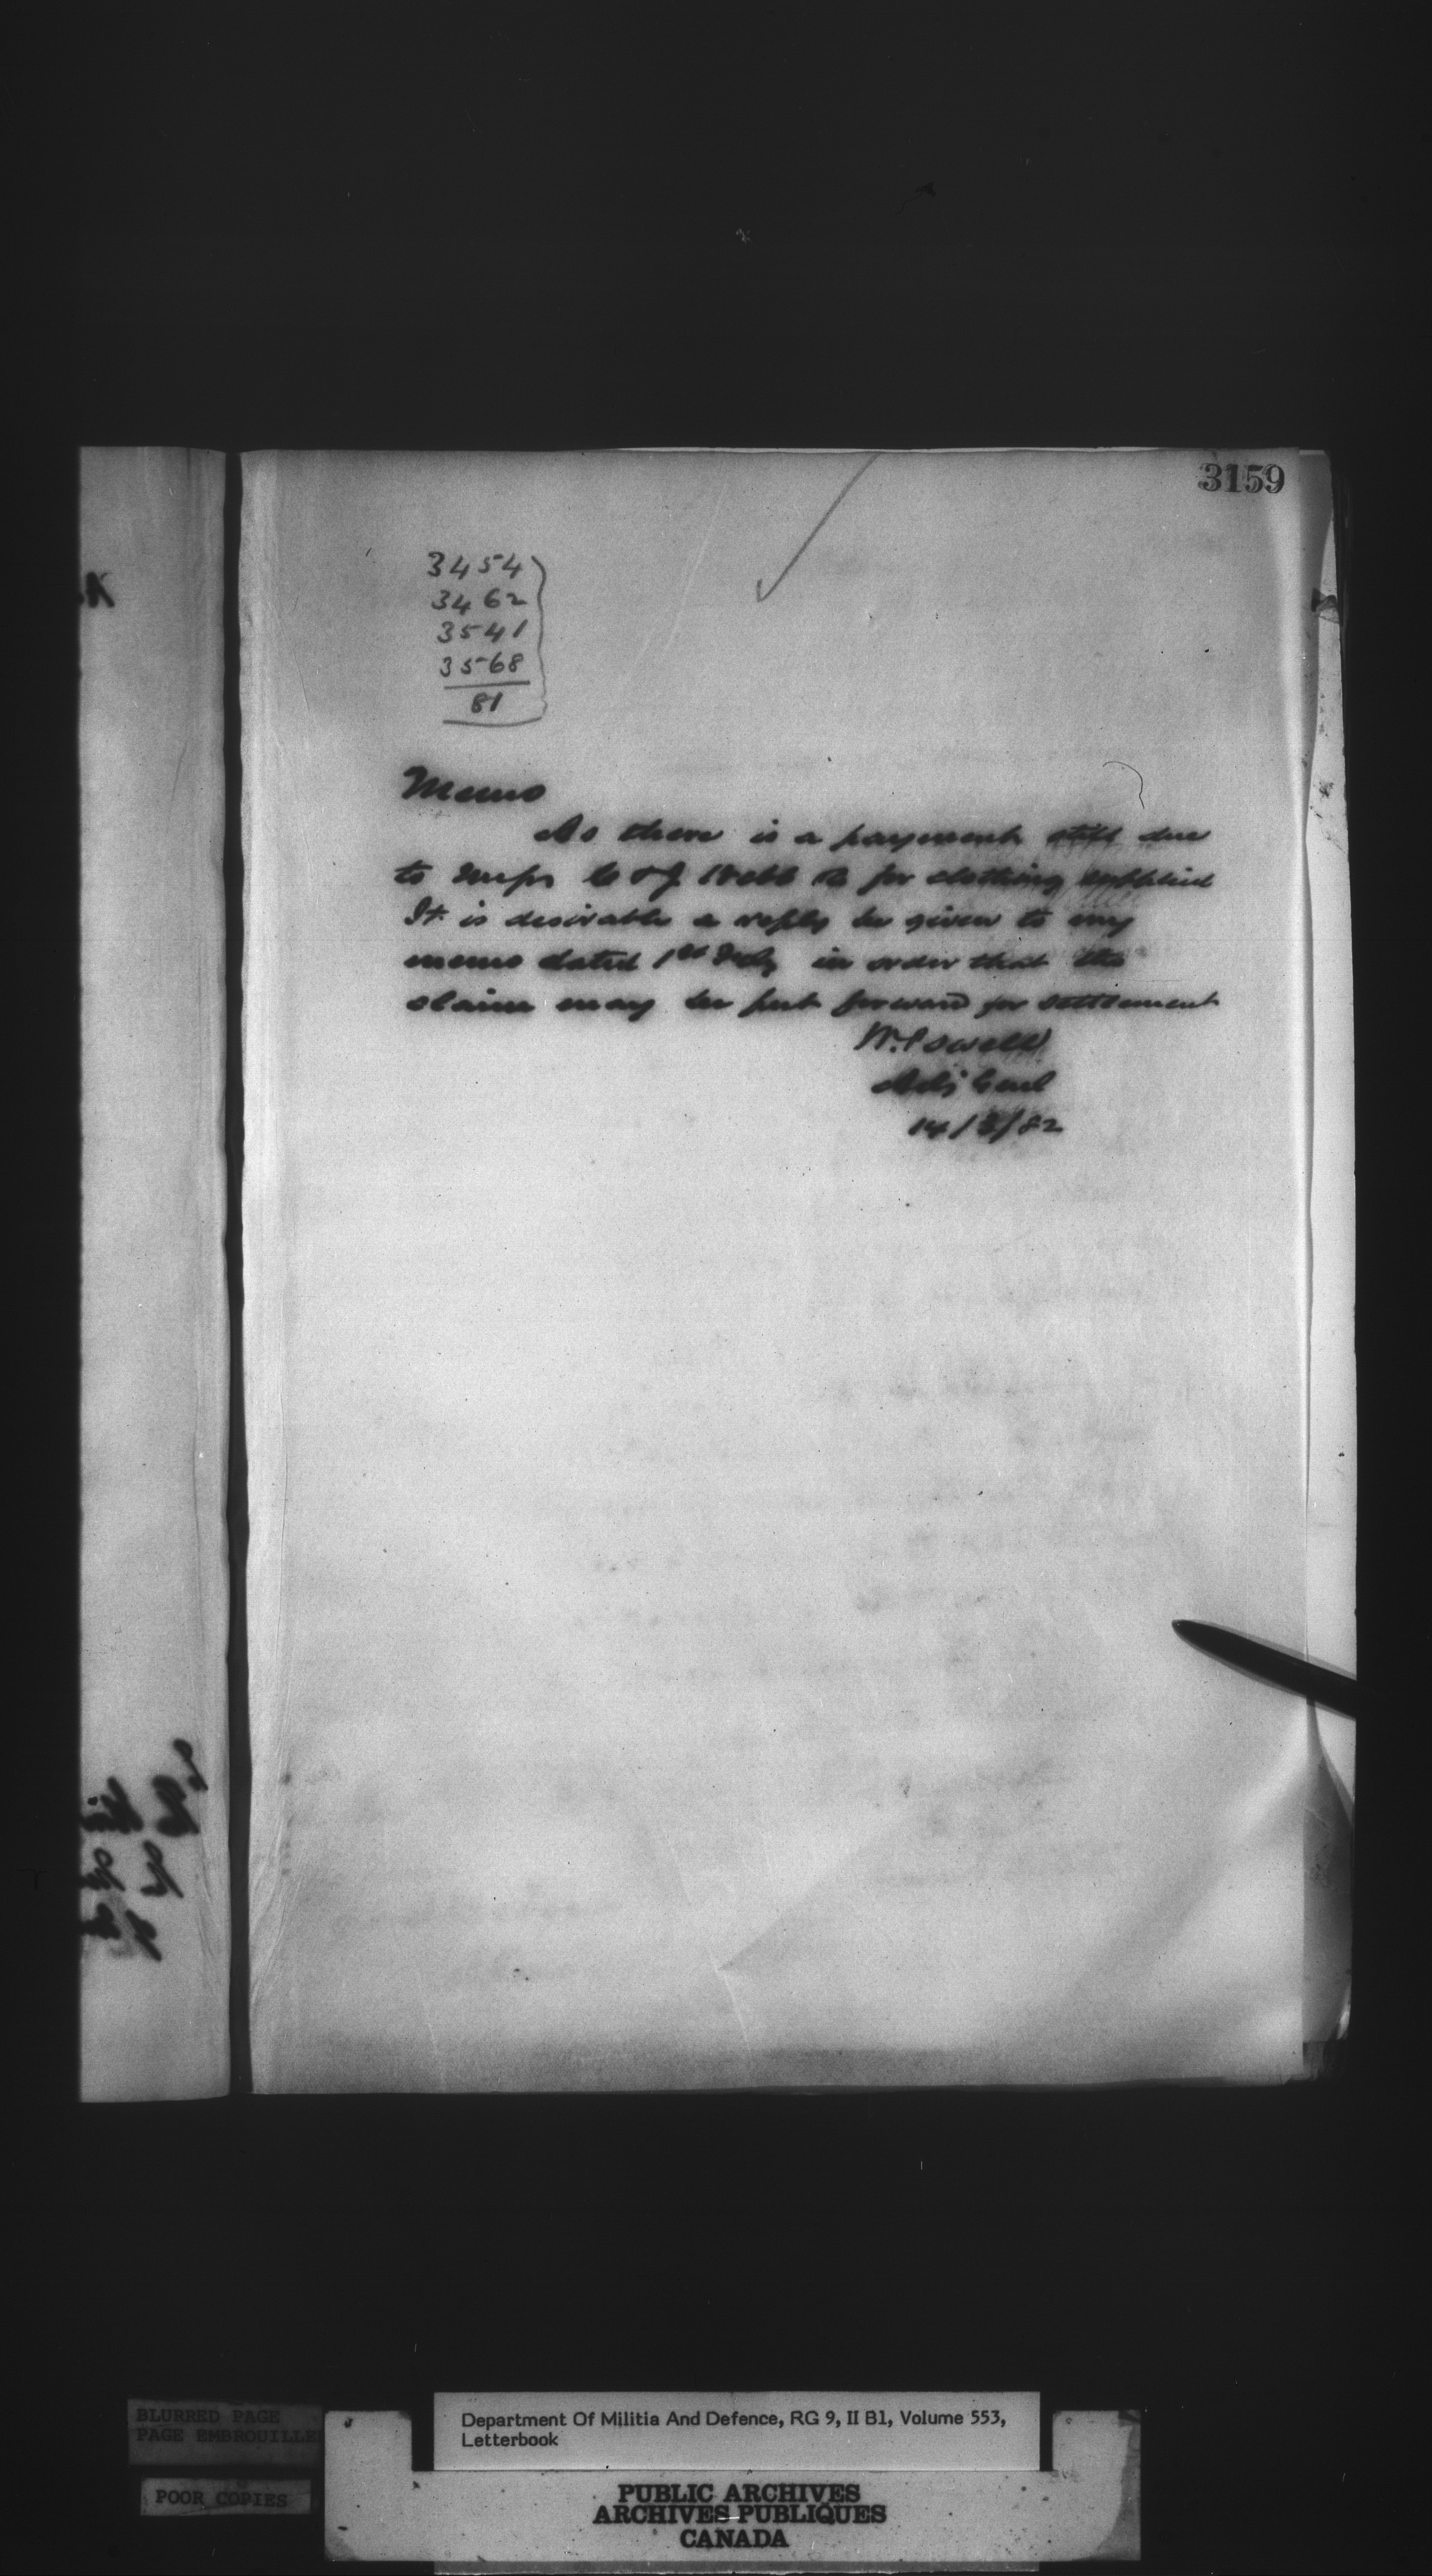 3159
3454
3462
3541
3568
81
Memo
As there is a payment still due
to Messrs C & J Webb for clothing supplied
It is desirable a reply be given to my
memo dated 1st in order that the
claim may be put forward for settlement
W. Powell
Adj Genl
14/3/82
BLURRED PAGE
PAGE EMBROUILLE
POOR COPIES
Department Of Militia And Defence, RG 9, II B1, Volume 553,
Letterbook
PUBLIC ARCHIVES
ARCHIVES PUBLIQUES
CANADA